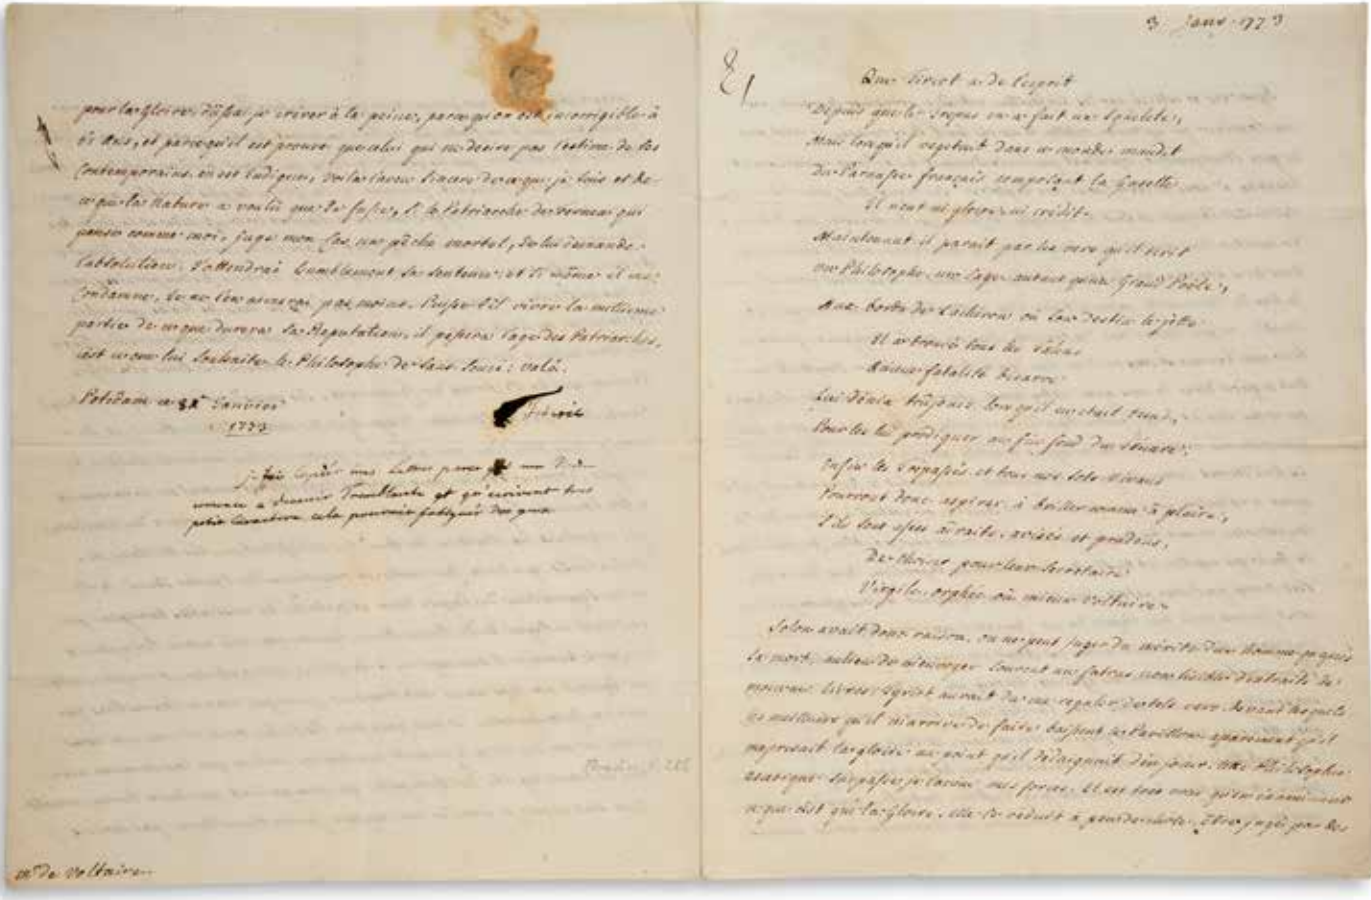 pour la Gloire. Dussai je crever à la peine, parce qu'on est incorrigible à
61 Ans, et parce qu'il est prouvé que celui qui ne desire pas l'estime de ses
Contemporains en est indigne, voila l'aveu sincere de ce que je suis et de
ce que la Nature a voulu que je fusse, Si le Patriarche de Verney qui
pense comme moi, juge mon Cas un péché mortel, je lui demande
l'absolution. J'attendrai humblement sa sentence, et si même il me
Condamne, je ne l'en aimerai pas moins. Puisse t'il vivre la millieme
partie de ce que durera sa Reputation, il passera l'age des Patriarches,
c'est ce que lui souhaite le Philosophe de Sans Souci: vale.
Potsdam ce Janvier
1773
Federic
je fais Copiér mes Lettres parce que ma
mence a devenir Tremblante et qu'ecrivant tres
petit Caractere cela pouroit fatiguér Vos yeux
mr de Voltaire
3 Janv. 1773
Que Tiriot a de l'esprit
Depuis que le trepas en a fait un squelete,
Mais lorsqu'il vegetait dans ce monde maudit
Du Parnasse français composant la Gazette
Il n'eut ni gloire, ni crédit.
Maintenant il parait par les vers qu'il écrit
un Philosophe, un sage autant qu'un Grand Poëte,
Aux bords de l'achéron où son destin le jette
Il a trouvé tous les talens
Qu'une fatalité bizarre
Lui dénia toujours lorsqu'il en était tems,
Pour les lui prodiguer au fin fond du ténare;
Enfin les trepassés et tous nos sots vivans
Pourront donc aspirer à briller comme à plaire,
S'ils sont assez adroits, avisés et prudens,
De choisir pour leur secretaire
Virgile, orphée, où mieux voltaire
Solon avait donc raison, on ne peut juger du mérite d'un homme qu'après
sa mort, aulieu de m'envoyer souvent un fatras non lisible d'extraits de
mauvais Livres, Tiriot aurait du me regaler de tels vers, devant lesquels
les meilleurs qu'il m'arrive de faire baissent le Pavillon, aparament qu'il
meprisait la gloire au point qu'il dédaignait d'en jouir. cette Philosophie
surpasse je l'avoue mes forces. Il est tres vrai qu'en examinant
ce que c'est que la Gloire, elle se reduit à peu de chose. Etre jugé par des